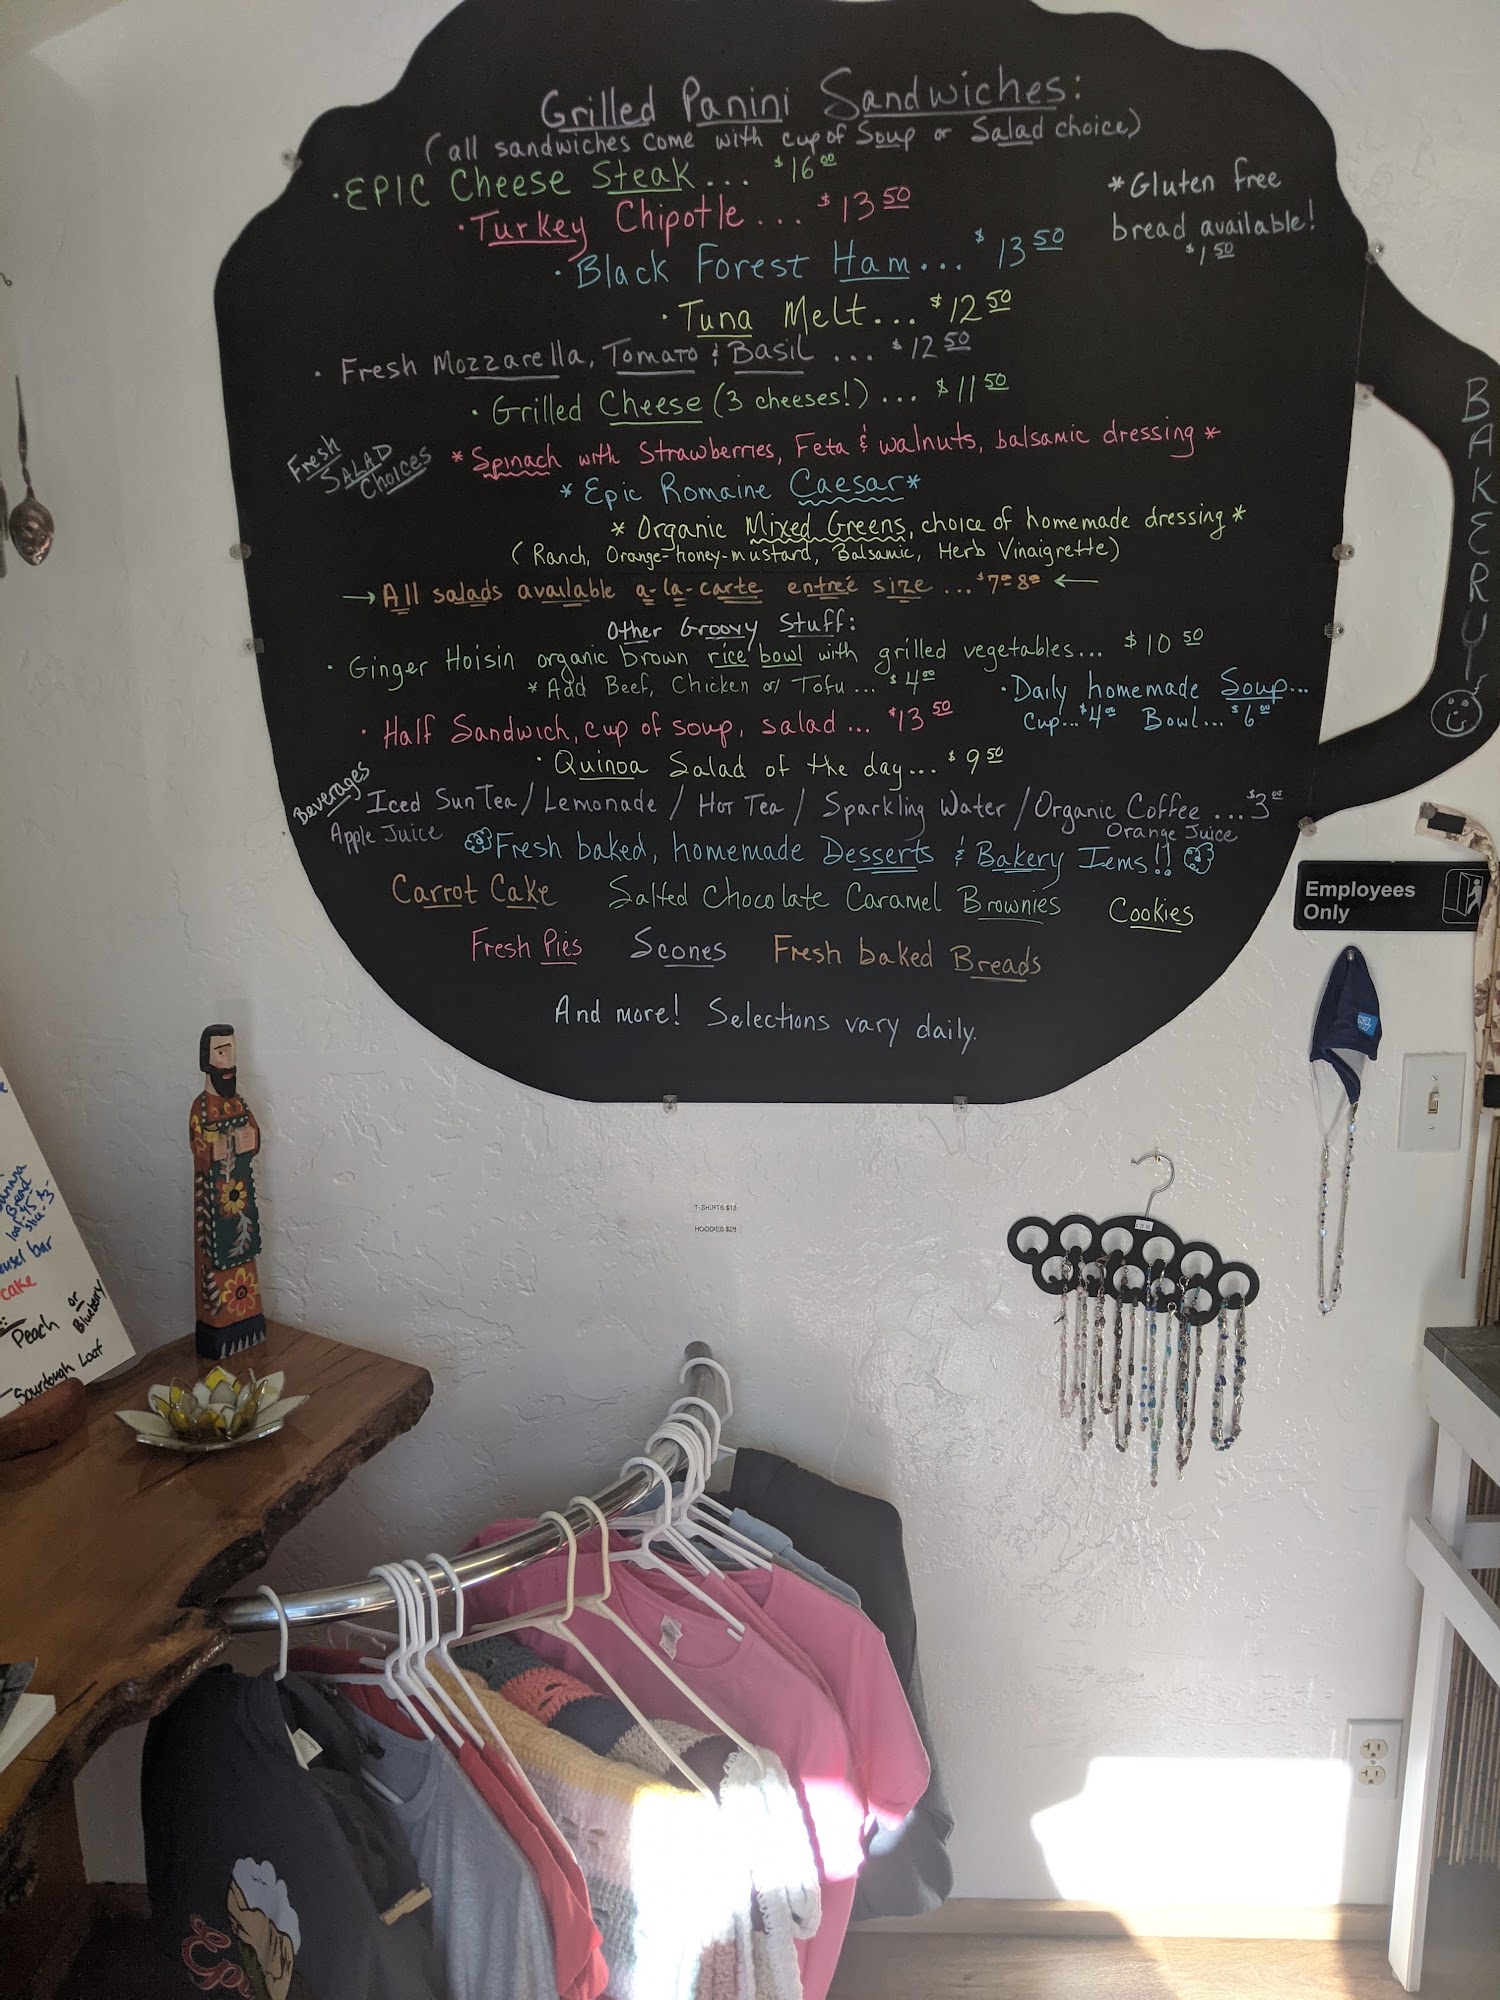 Grilled Panini Sandwiches:
(all sandwiches come with cup of Soup or Salad choice)
· EPIC Cheese Steak... $16.00
* Gluten free
bread available!
$1.50
· Turkey Chipotle... $13.50
· Black Forest Ham... $13.50
· Tuna Melt... $12.50
· Fresh Mozzarella, Tomato & Basil ... $12.50
· Grilled Cheese (3 cheeses!) ... $11.50
Fresh
SALAD
Choices
* Spinach with Strawberries, Feta & walnuts, balsamic dressing *
* Epic Romaine Caesar *
* Organic Mixed Greens, choice of homemade dressing *
(Ranch, Orange-honey-mustard, Balsamic, Herb Vinaigrette)
→ All salads available a-la-carte entreé size ... $7.00 8.00 ←
Other Groovy Stuff:
· Ginger Hoisin organic brown rice bowl with grilled vegetables... $10.50
* Add Beef, Chicken or Tofu... $4.00
· Daily homemade Soup...
Cup...$4.00 Bowl...$6.00
· Half Sandwich, cup of soup, salad... $13.50
· Quinoa Salad of the day... $9.50
Beverages
Iced Sun Tea / Lemonade / Hot Tea / Sparkling Water / Organic Coffee ...$3.00
Apple Juice
Orange Juice
Fresh baked, homemade Desserts & Bakery Iems!!
Carrot Cake Salted Chocolate Caramel Brownies Cookies
Fresh Pies Scones Fresh baked Breads
And more! Selections vary daily.
BAKERY!
Employees
Only
T-SHIRTS $13
HOODIES $29
Bread
loaf-
bar
cake
Peach or Blueberry
Sourdough Loaf